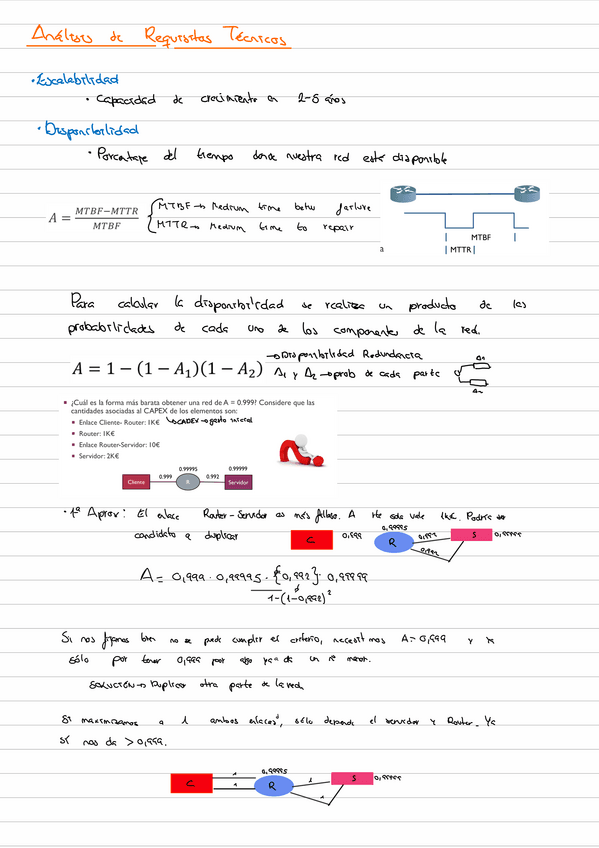 Análisis de Requisitos Técnicos
• Escalabilidad
• Capacidad de crecimiento en 2-5 años
• Disponibilidad
• Porcentaje del tiempo donde nuestra red esté disponible
A = (MTBF−MTTR)/MTBF
MTBF → Medium time betw failure
MTTR → Medium time to repair
MTBF
MTTR
a
Para calcular la disponibilidad se realiza un producto de las
probabilidades de cada uno de los componentes de la red.
A = 1 − (1 − A₁)(1 − A₂)
→ Disponibilidad Redundancia
A₁ y A₂ → prob de cada parte
A₁
A₂
¿Cuál es la forma más barata obtener una red de A = 0.999? Considere que las
cantidades asociadas al CAPEX de los elementos son:
Enlace Cliente- Router: 1K€
↳ CAPEX → gasto inicial
Router: 1K€
Enlace Router-Servidor: 10€
Servidor: 2K€
0.99995 0.99999
Cliente 0.999 R 0.992 Servidor
• 1ª Aprox: El enlace Router-Servidor es más falloso. A
candidato a duplicar
C 0,999 0,99995 R 0,992 0,992 S 0,99999
A = 0,999 · 0,99995 · {0,992} · 0,99999
1-(1-0,992)²
Si nos fijamos bien no se puede cumplir el criterio, necesitamos A=0,999 y
sólo por tener 0,999 por algo ya da un nº menor.
SOLUCIÓN → Duplicar otra parte de la red.
Si maximizamos a 1 ambos enlaces, sólo depende el servidor y Router. Ya
sí nos da > 0,999.
C 1 1 0,99995 R 1 1 S 0,99999